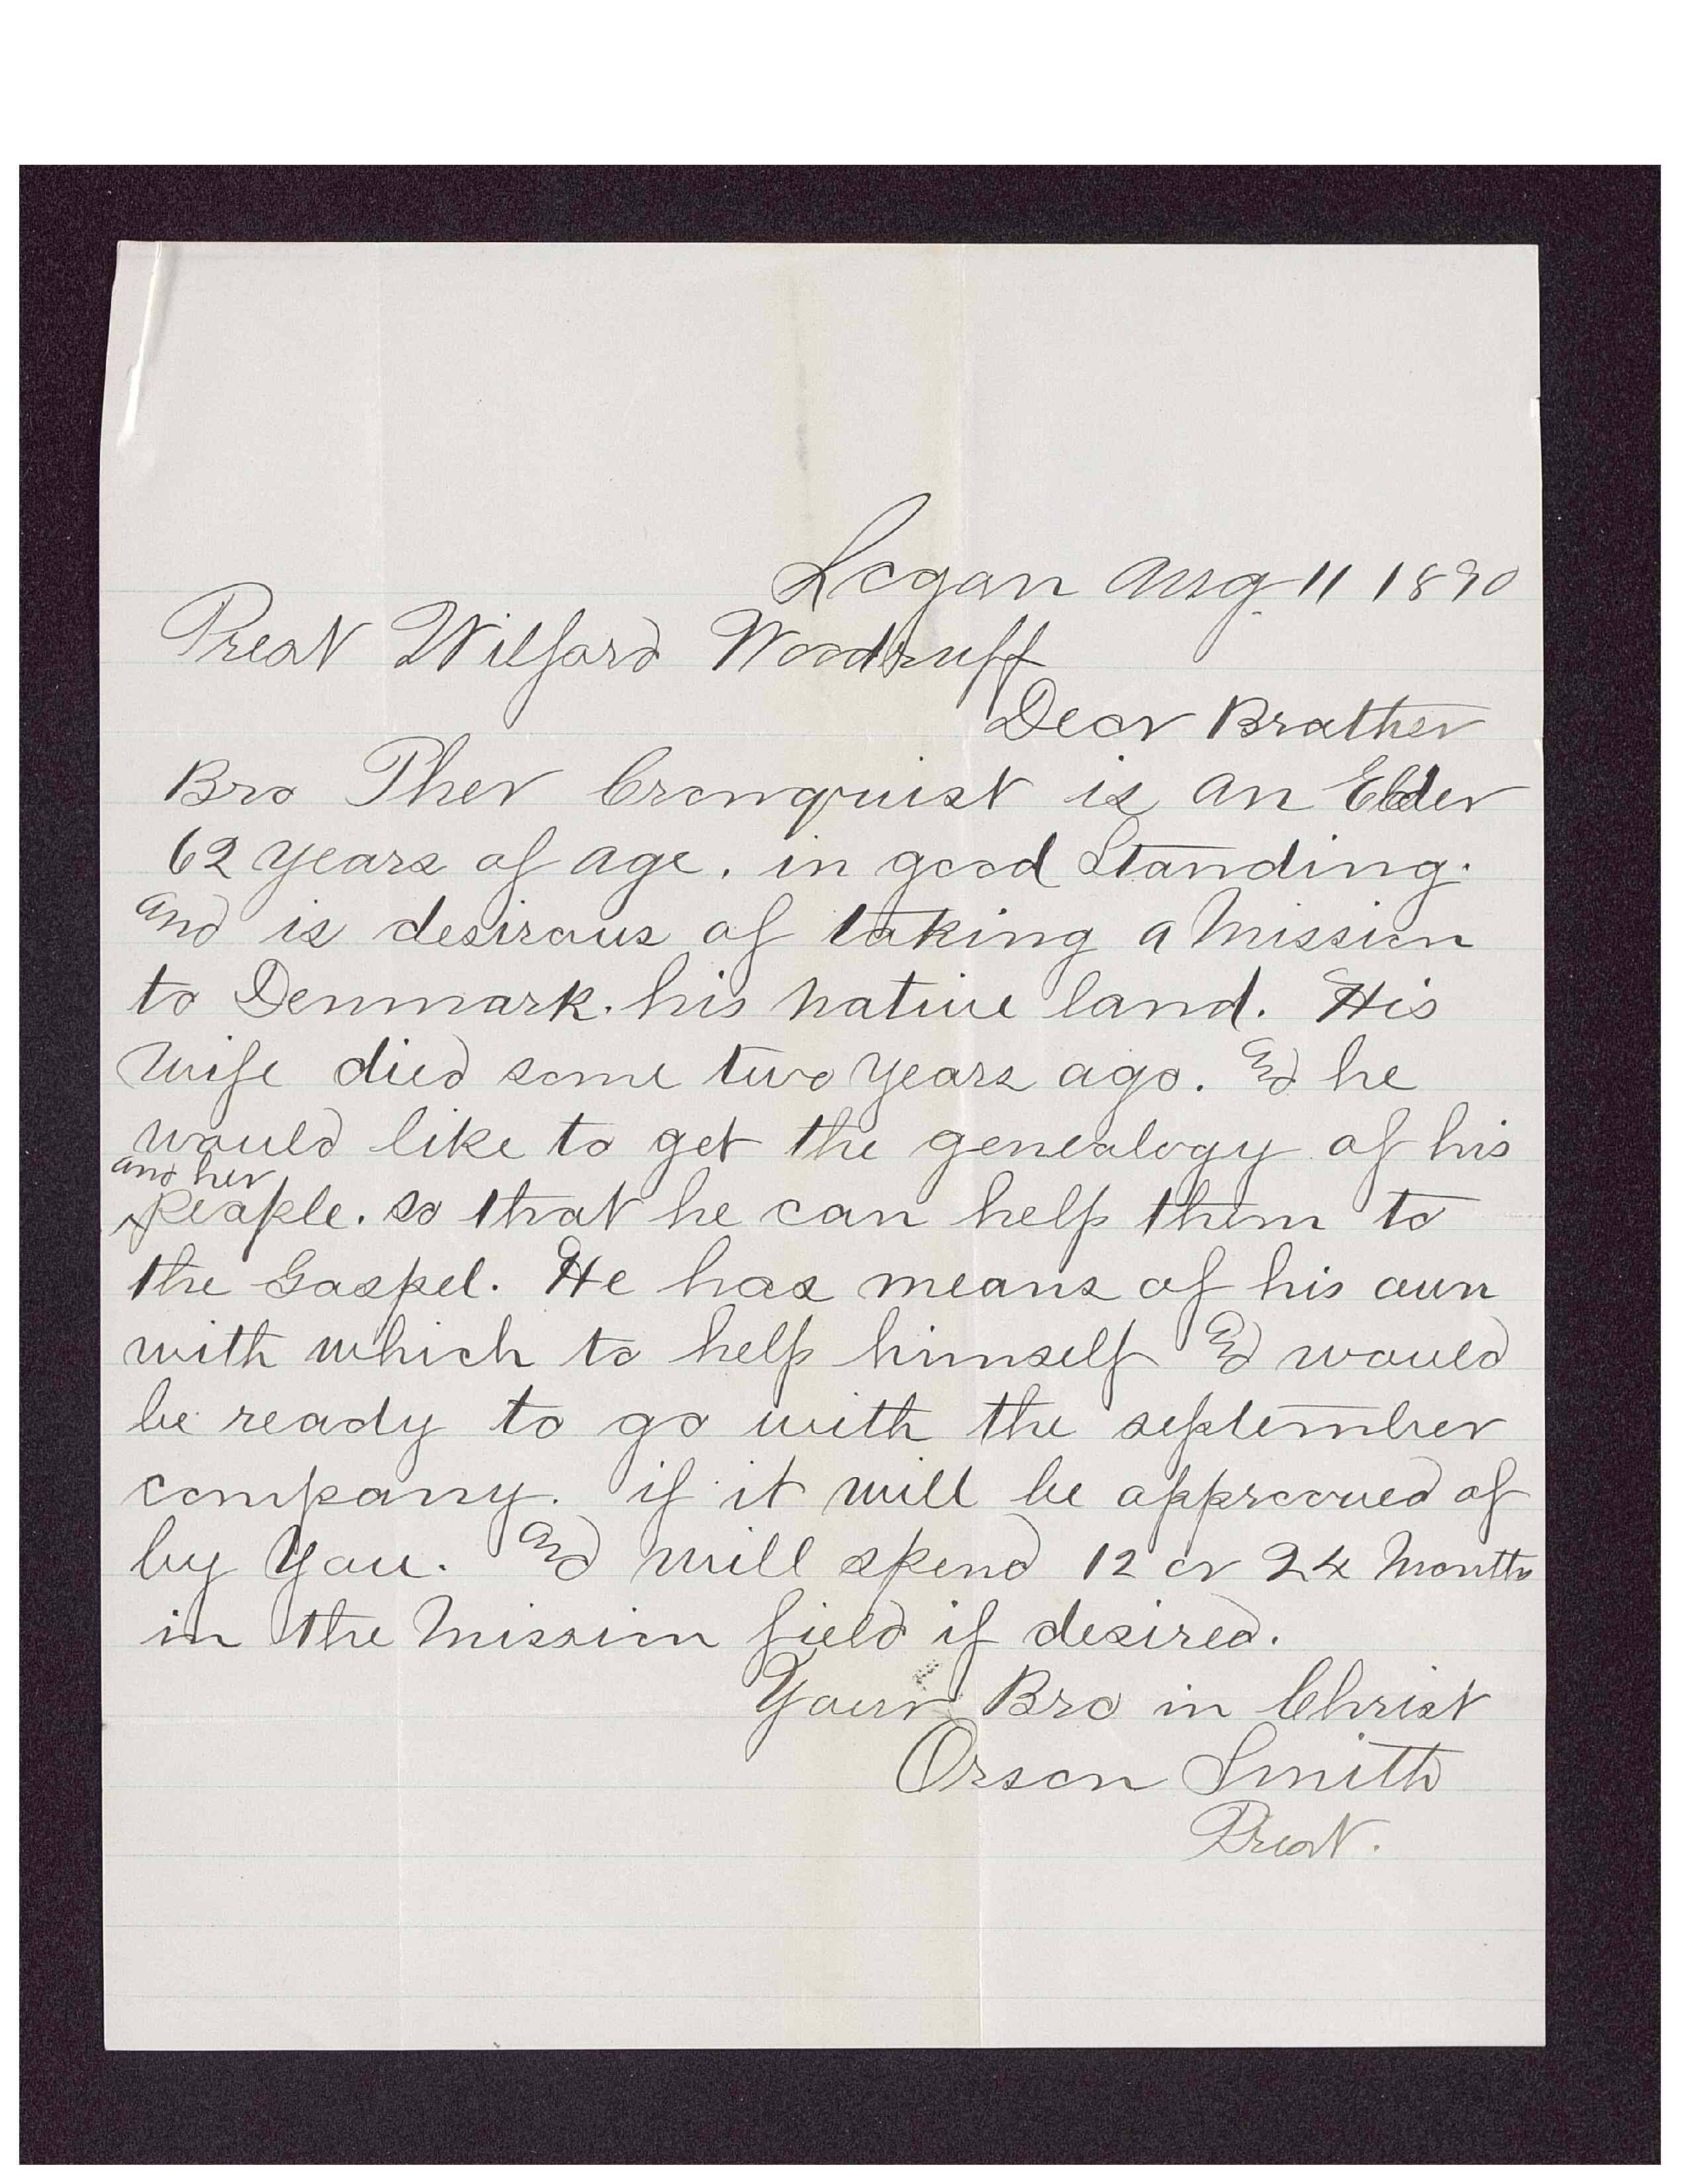 Logan Aug 11 1890
Prest Wilford Woodruff
Dear Brother
Bro Ther Cronquist is an Elder
62 years of age. in good Standing.
and is desirous of taking a Mission
to Denmark. his native land. His
Wife died some two years ago. and he
would like to get the genealogy of his
and her
people. so that he can help them to
the Gospel. He has means of his own
with which to help himself and would
be ready to go with the september
company. if it will be approoved of
by You. and will spend 12 or 24 Months
in the Mission field if desired.
Your Bro in Christ
Orson Smith
Prest.